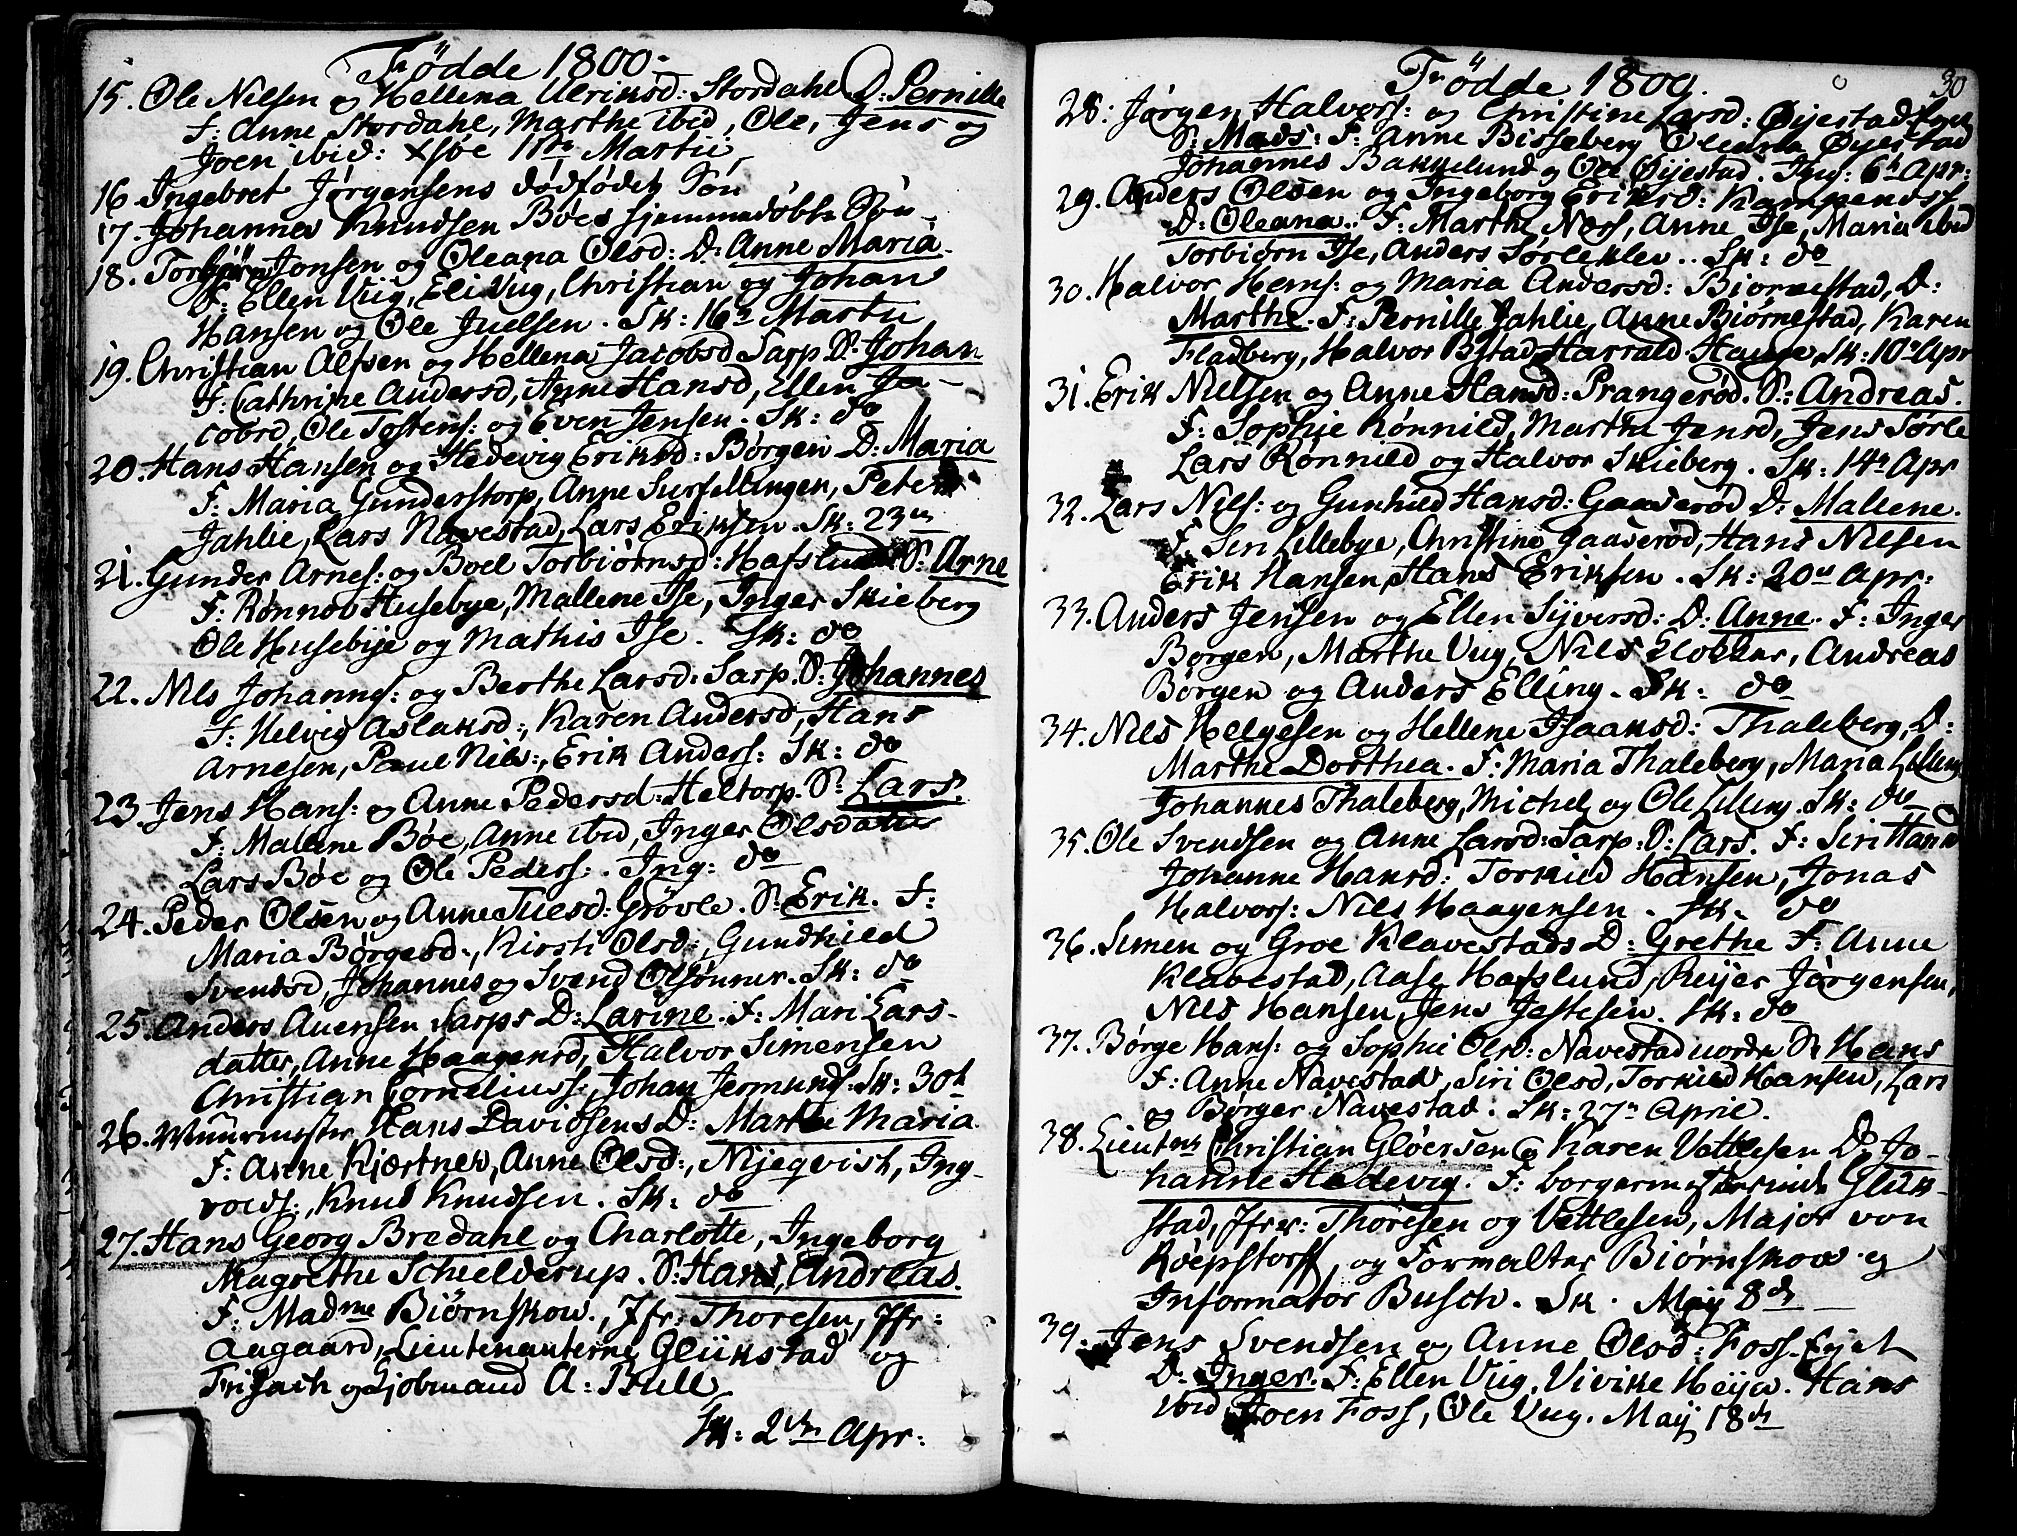 Fødde 1800.
15. Ole Nilsen og Hellena Ulriksd: Stordahl D: Pernille
F: Anne Stordahl, Marthe ibid, Ole, Jens og
Joen ibid: 11te Martii
16 Ingebret Jørgensens dødfødet Søn
17. Johannes Knudsen Bøes hjemmedøbte Søn
18. Torbiørn Jonsen og Oleana Olsd: D: Anne Maria.
F: Ellen Viig, Eli Vug, Christian og Johan
Hansen og Ole Juelsen. Sk: 16de Martii
19. Christian Alfsen og Hellena Jacobsd Sarp S: Johan
F: Cathrine Andersd, Anne Hansd, Ellen Ja-
cobsd, Ole Tostens: og Even Jensen. Sk: do
20. Hans Hansen og Hedevig Eriksd: Børgen D: Maria
F: Maria Gunderstorp, Anne Surfellingen, Peter
Jahlie, Lars Navestad, Lars Eriksen. Sk: 23de
21. Gunder Arnes: og Boel Torbiørnsd: Hafslund S: Arne
F: Rønnov Husebye, Mallene Ise, Inger Skieberg
Ole Husebye og Mathis Ise. Sk: do
22. Nils Johanns: og Berthe Larsd: Sarp. S: Johannes
F: Helvig Aslaksd:, Karen Andersd, Hans
Arnesen, Paul Nils:, Erik Anders: Sk: do
23. Jens Hans: og Anne Pedersd: Heltorp. S: Lars.
F: Mallene Bøe, Anne ibid, Inger Olsdatter
Lars Bøe og Ole Peders:. Ing: do
24. Peder Olsen og Anne Juelsd: Grøvle. S: Erik. F:
Maria Børgesd., Kirsti Olsd:, Gundhild
Svendsd, Johannes og Svend Olsønner. Sk: do
25. Anders Auensen Sarps D: Larine. F: Mari Lars-
datter, Anne Haagensd, Halvor Simensen
Christian Cornelius:, Johan Jermunds: Sk: 30t
26. Muurmester Hans Davidsens D: Marthe Maria.
F: Anne Kjærtnes, Anne Olsd:, Nyeqvist, Ing-
volds:, Knud Knudsen. Sk: do
27. Hans Georg Bredahl og Charlotte, Ingeborg
Magrethe Schielderup. S: Hans, Andreas.
F: Madme Biørnskow., Jfr: Thoresen, Jfr:
Aagaard, Lieutenanterne Glükstad og
og A: Bull
Sk: 2den Apr:
Fødde 1800.
30
28. Jørgen Halvors: og Christine Larsd: Øyestad
S: Mads: F: Anne Bisseberg Oleana Øyestad
Johannes Bakkelund og Ole Øyestad. Ing: 6te Apr:
29. Anders Olsen og Ingeborg Eriksd:
D: Oleana. F: Marthe Næss, Anne Ise, Maria ibid
Torbiørn Ise, Anders Sørleklev.. Sk: do
30. Halvor Hems: og Maria Andersd: Biørnestad, D:
Marthe. F: Pernille Jahlie, Anne Biørnestad, Karen
Fladberg, Halvor Bstad Harrald Hauge, Sk: 10de Apr
31. Erik Nielsen og Anne Hansd: Prangerød. S: Andreas.
F: Sophie Rønnild, Marthe Jensd, Jens Sørle
Lars Rønnild og Halvor Skieberg. Sk: 14de Apr
32. Lars Nils: og Gunhild Hansd: Gaaserød D: Mallene.
F. Siri Lillebye, Christine Gaaserød, Hans Nilsen
Erik Hansen, Hans Eriksen. Sk: 20de Apr:
33. Anders Jensen og Ellen Siversd: D: Anne. F: Inger
Borgen, Marthe Vug, Nils Klokker, Andreas
Børgen og Anders Elling. Sk: do
34. Nils Helgesen og Hellene Isaaksd: Thaleberg, D:
Marthe Dorthea. F: Maria Thaleberg, Maria Lilleng
Johannes Thaleberg, Michel og Ole Lilleng. Sk: do
35. Ole Svendsen og Anne Larsd: Sarp. S: Lars. F: Siri Hansd
Johanne Hansd: Torkild Hansen, Jonas
Halvors: Nils Haagensen. Sk. do
36. Simen og Groe Klavestads D: Grethe F: Anne
Klavestad, Aase Hafslund, Reyer Jørgensen,
Nils Hansen, Jens Jestesen. Sk: do
37. Børge Hans: og Sophie Olsd: Navestad nordre S: Hans
F: Anne Navestad, Siri Olsd, Torkild Hansen, Lars
og Børger Navestad. Sk: 27de Aprie.
38. Lieutnt Christian Gløersen og Karen Vettlesen D: Jo-
hanne Hedevig. F: borgermesterinde Glük-
stad, Jfrr: Thoresen og Vettlesen, Major von
Röepstorff, og Formalter Biørnskow og
Informator Busch. Sk. May 8de
39. Jens Svendsen og Anne Olsd: Foss-Eyet
D: Inger. F: Ellen Vug, Vivike Heye. Hans
ibid, Joen Foss, Ole Vug. May 18de